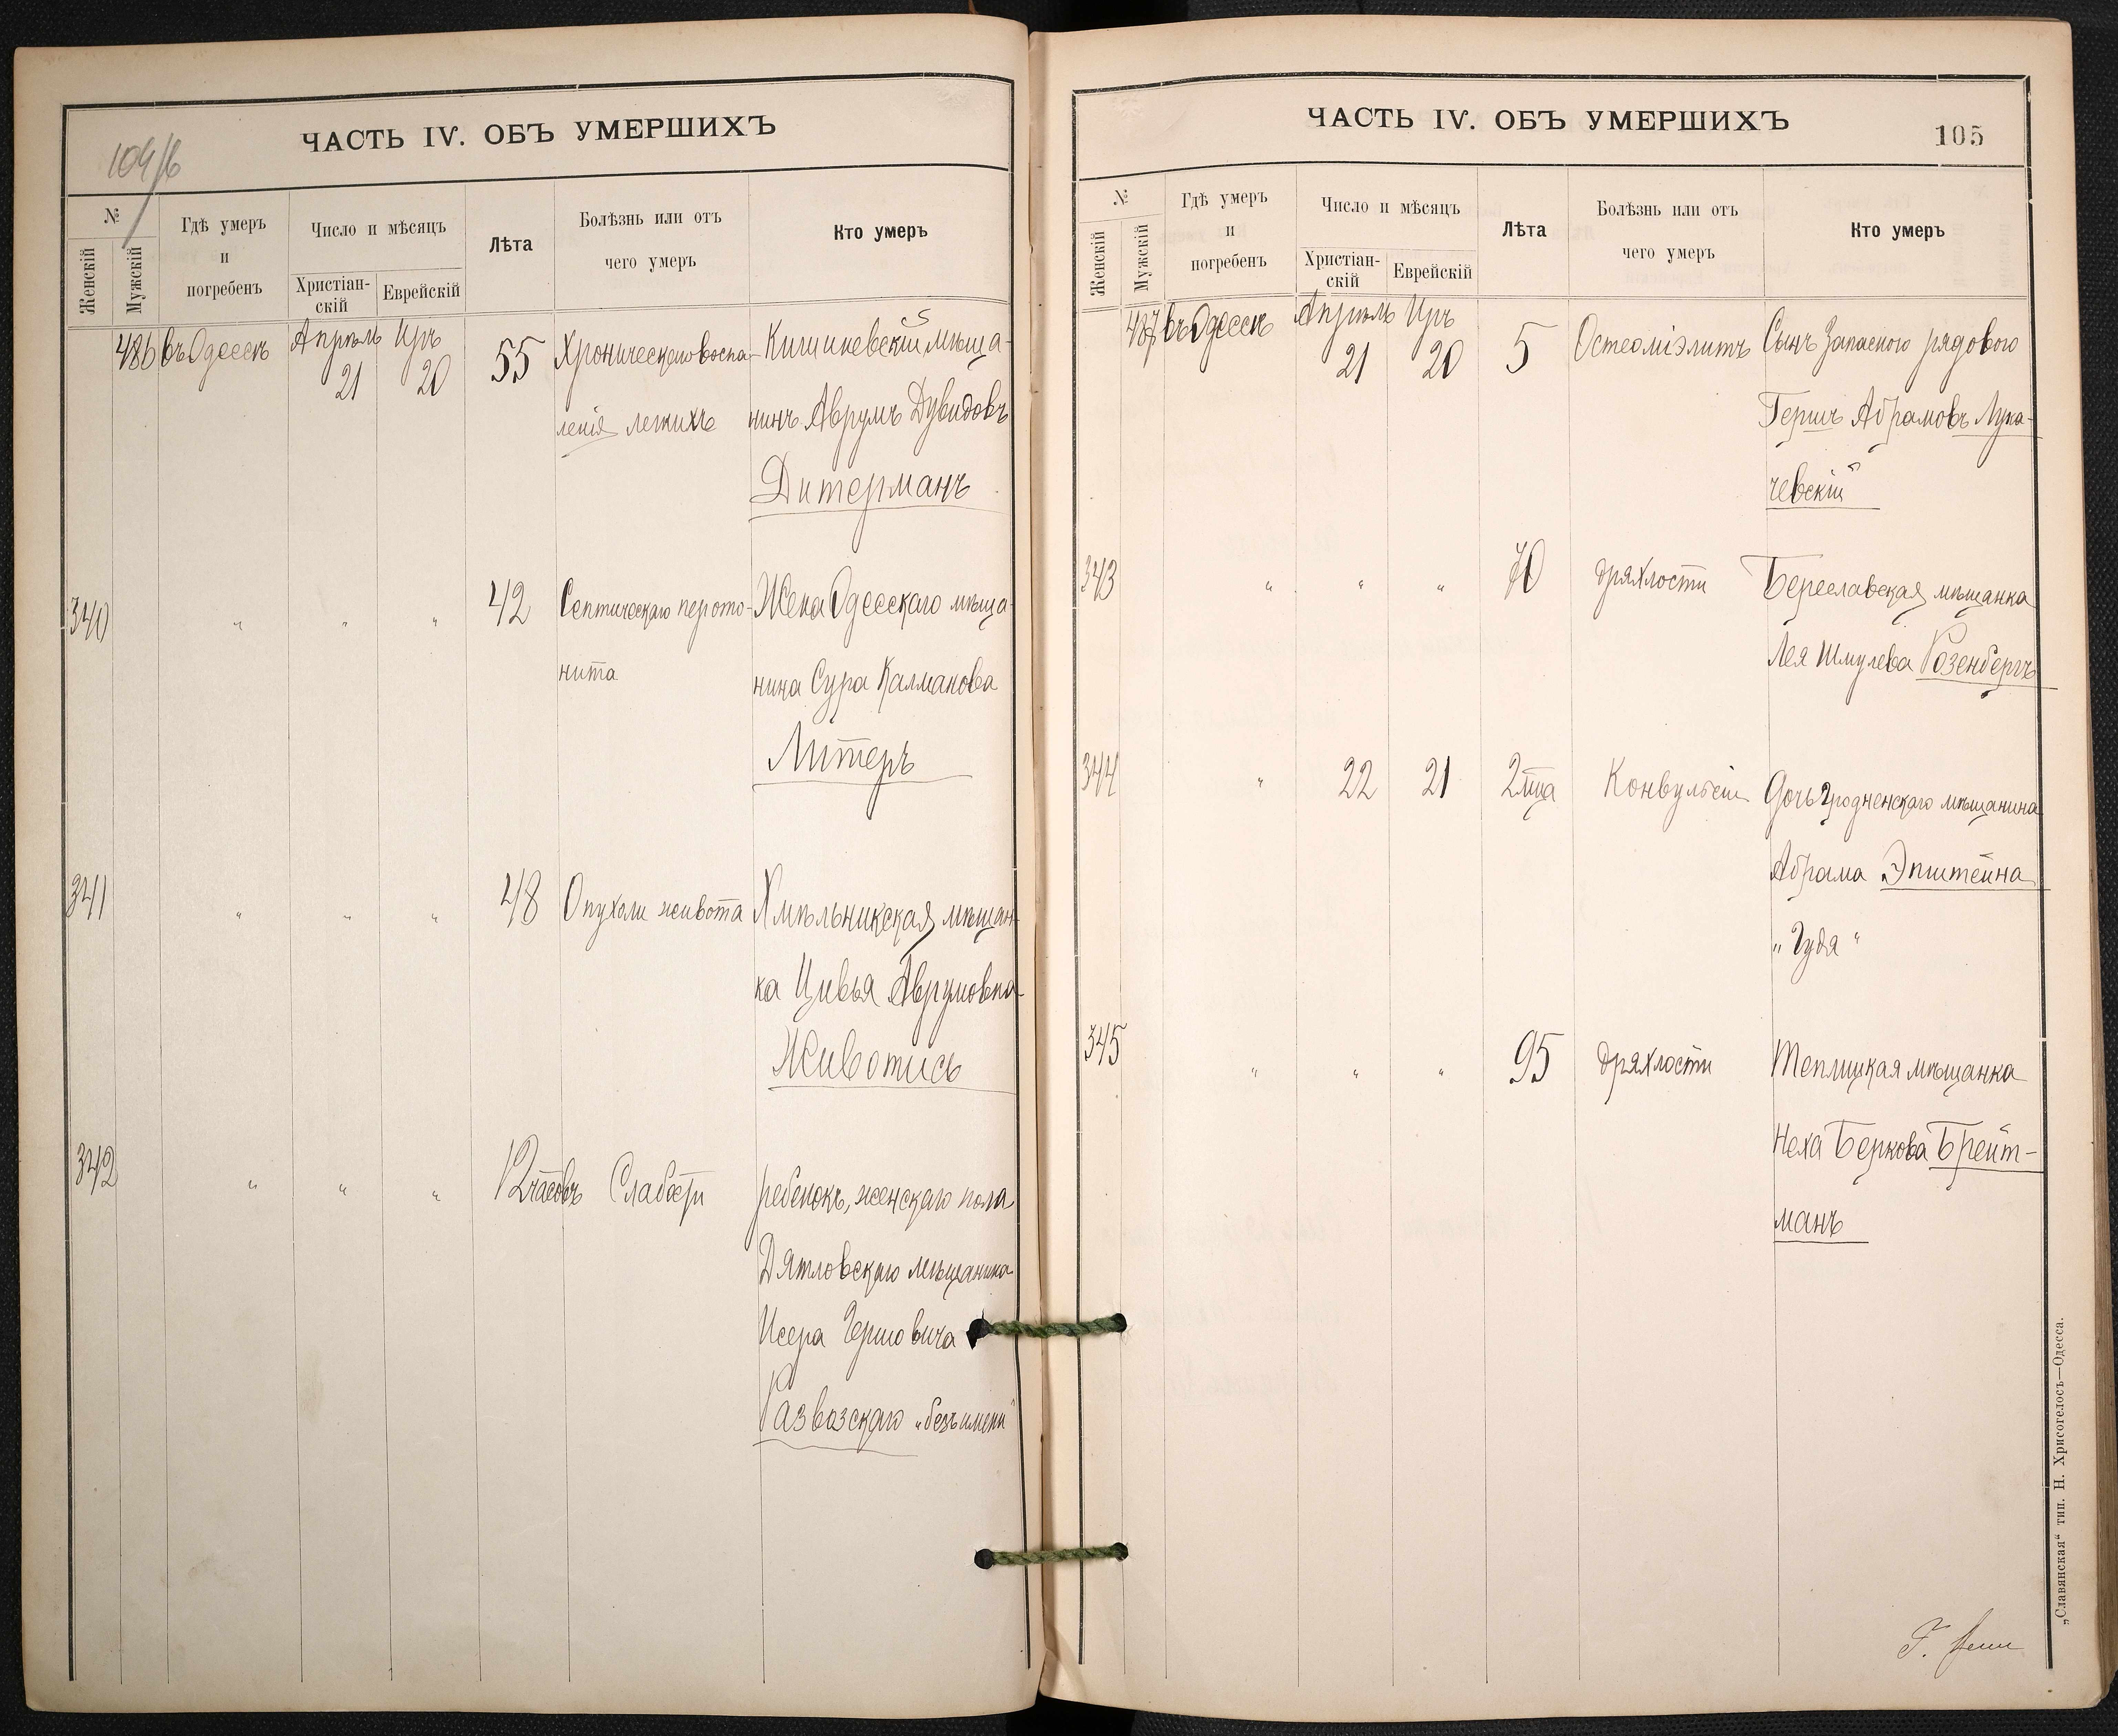 ЧАСТЬ IV. ОБЪ УМЕРШИХЪ
№
Женскій
Мужскій
Гдѣ умеръ
и
погребенъ
Число и мѣсяцъ
Христіан-
скій
Еврейскій
Лѣта
Болѣзнь или отъ
чего умеръ
Кто умеръ
486 въ Одессѣ Апрѣль 21 Иръ 20 55 Хроническаго воспа- Кишиневскій мѣща-
ленія легкихъ нинъ Аврумъ Дувидовъ
Дитерманъ
340 " " " 42 Септическаго перото- Жена Одесскаго мѣща-
нита нина Сура Калманова
Литеръ
341 " " " 48 Опухоли живота Хмѣльникская мѣщан-
ка Цивья Аврумовна
Животись
342 " " " 12 часовъ Слабости ребенокъ, женскаго пола
Дятловскаго мѣщанина
Исера Гершовича
Развозскаго „безъ имени"
ЧАСТЬ IV. ОБЪ УМЕРШИХЪ
105
№
Женскій
Мужскій
Гдѣ умеръ
и
погребенъ
Число и мѣсяцъ
Христіан-
скій
Еврейскій
Лѣта
Болѣзнь или отъ
чего умеръ
Кто умеръ
487 въ Одессѣ Апрѣль 21 Иръ 20 5 Остеоміэлитъ Сынъ Запаснаго рядового
Гершъ Абрамовъ Лука-
чевскій
343 " " " 70 дряхлости Береславская мѣщанка
Лея Шмулева Розенбергъ
344 " 22 21 2 мца Конвульсіи Дочь Гродненскаго мѣщанина
Абрама Эпштейна
„Гудя"
345 " " " 95 дряхлости Теплицкая мѣщанка
Неха Беркова Брейт-
манъ
„Славянская" тип. Н. Хрисогелосъ—Одесса.